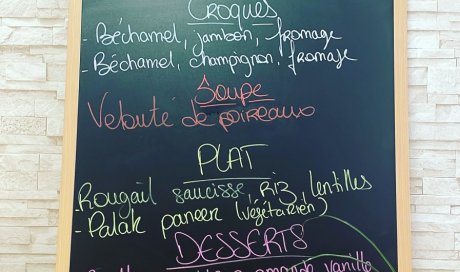 CROQUES
- Béchamel, jambon, fromage
- Béchamel, champignon, fromage
Soupe
Velouté de poireaux
PLAT
- Rougail saucisse, Riz, lentilles
- Palak paneer (végétarien)
DESSERTS
amande vanille